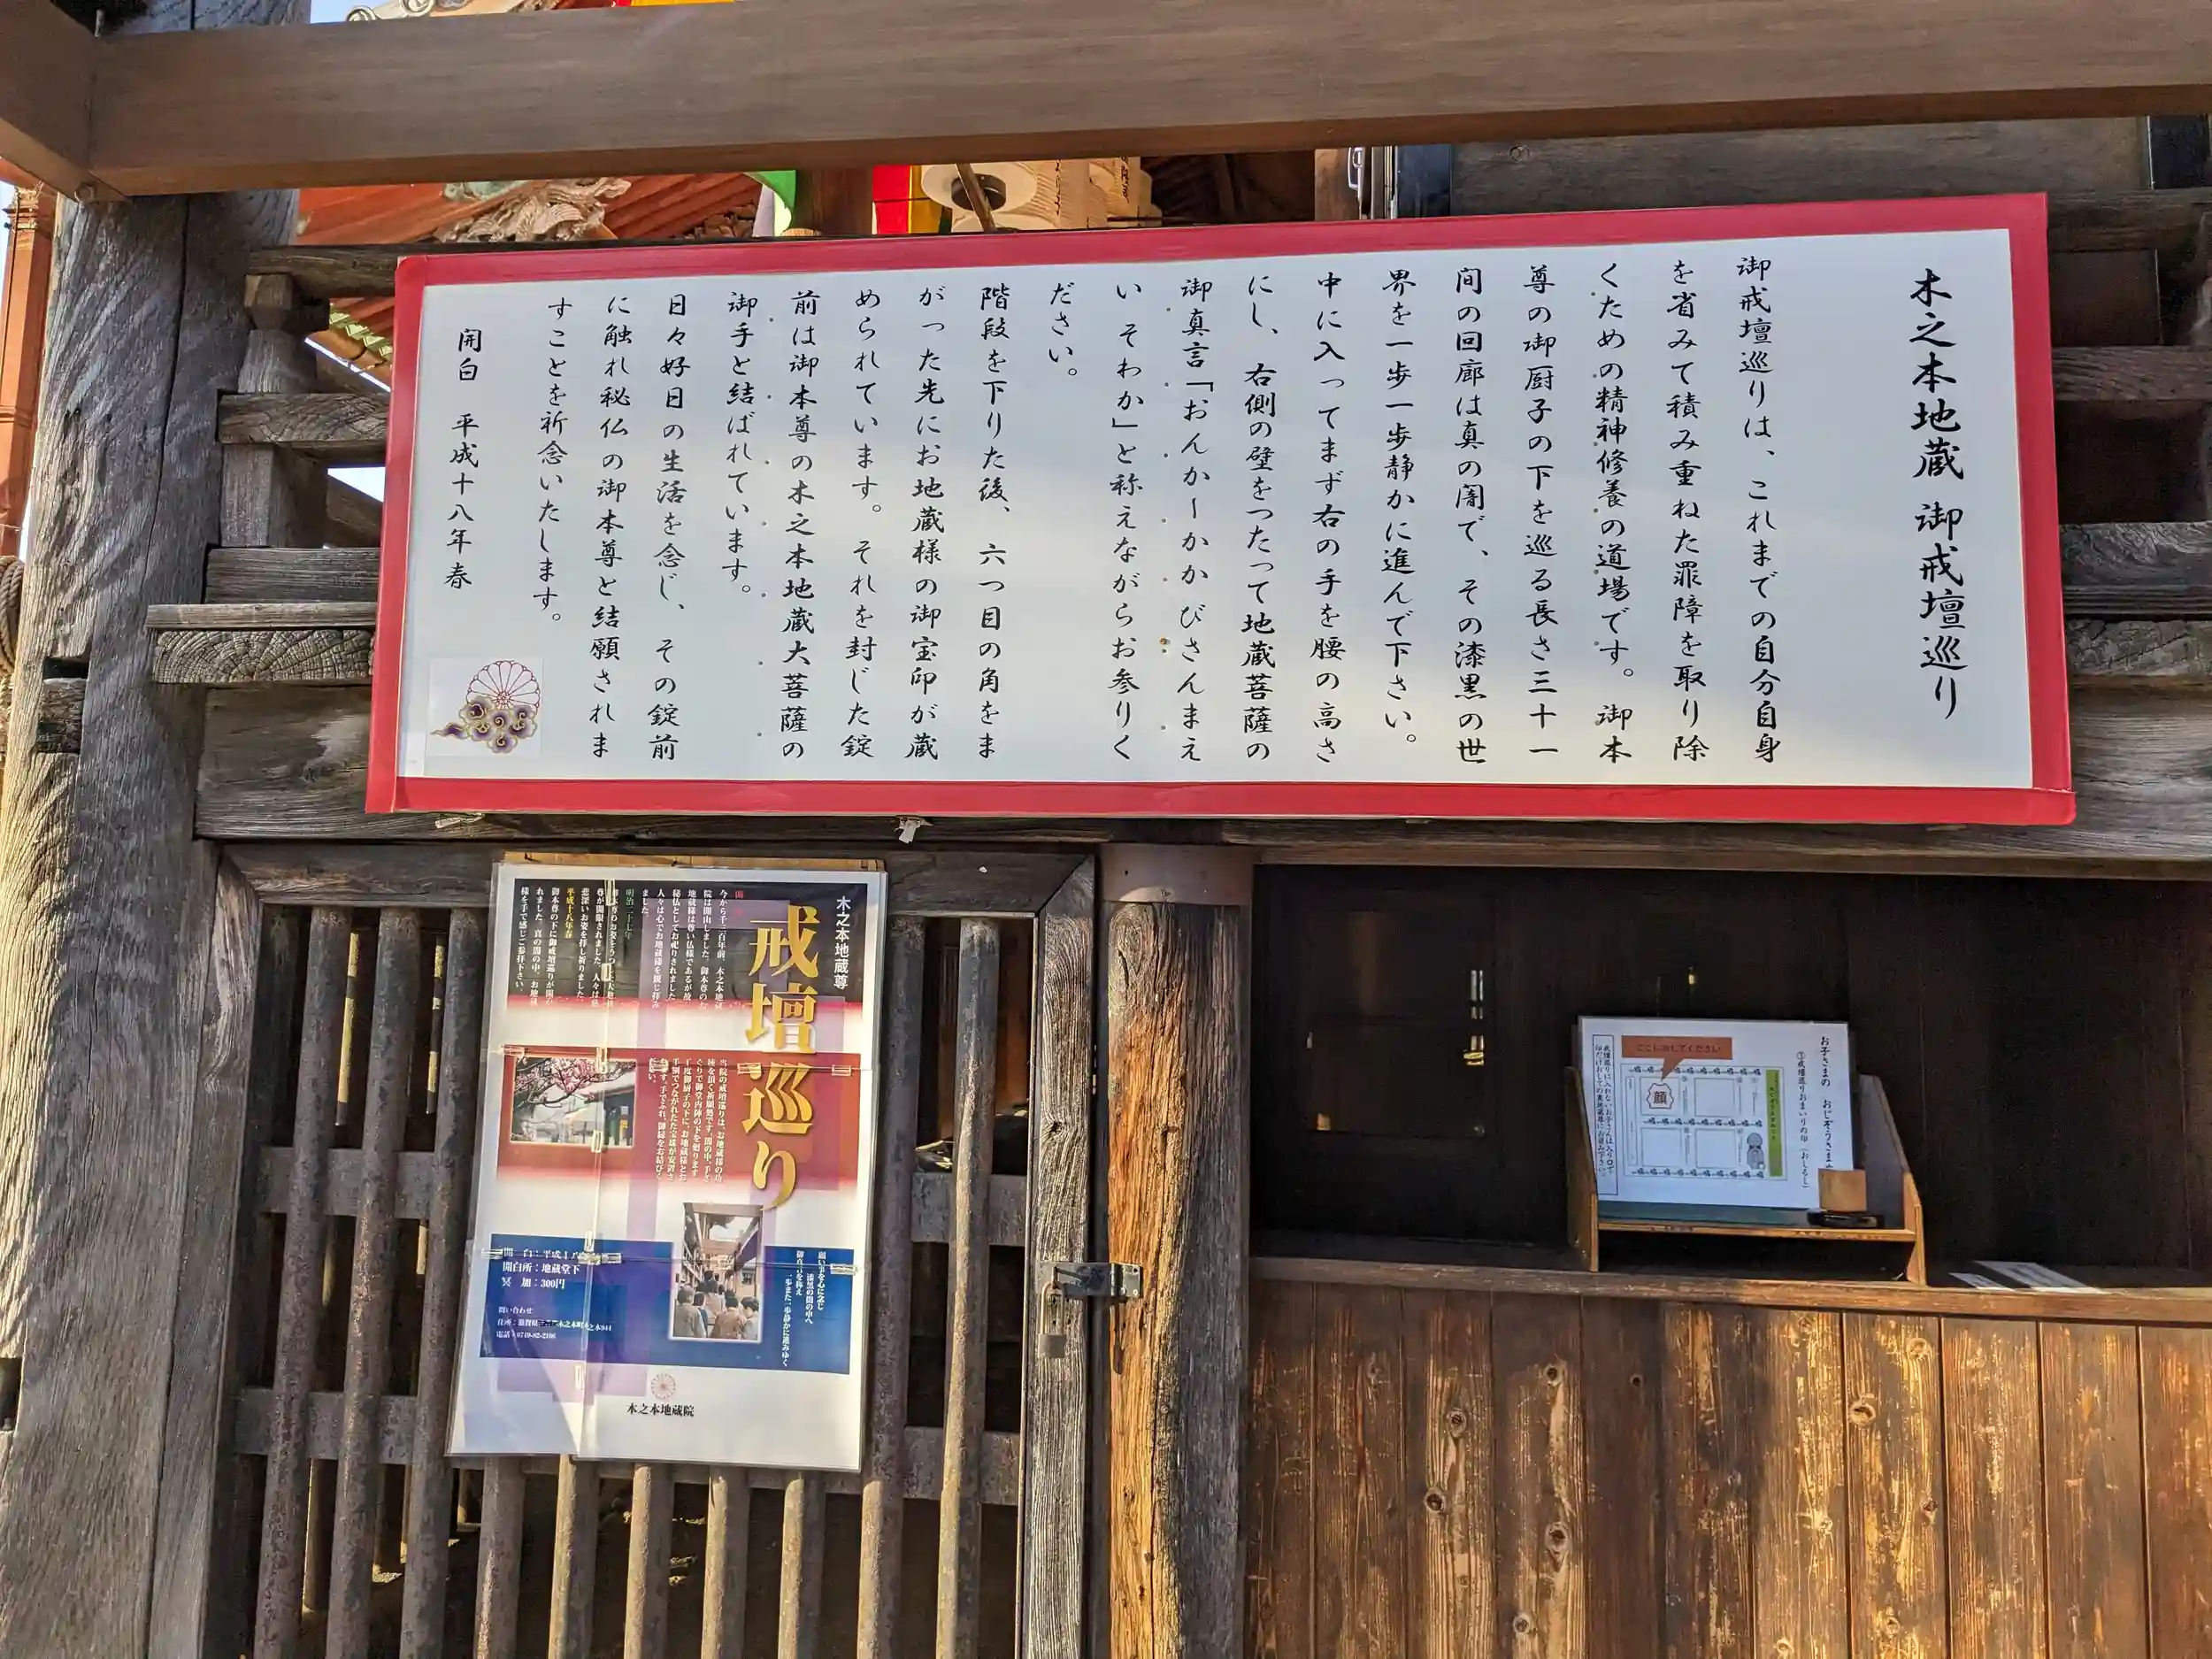 木之本地蔵 御戒壇巡り
御戒壇巡りは、これまでの自分自身
を省みて積み重ねた罪障を取り除
くための精神修養の道場です。御本
尊の御厨子の下を巡る長さ三十一
間の回廊は真の闇で、その漆黒の世
界を一歩一歩静かに進んで下さい。
中に入ってまず右の手を腰の高さ
にし、右側の壁をつたって地蔵菩薩の
御真言「おんかーかかびさんまえ
いそわか」と称えながらお参りく
ださい。
階段を下りた後、六つ目の角をま
がった先にお地蔵様の御宝印が蔵
められています。それを封じた錠
前は御本尊の木之本地蔵大菩薩の
御手と結ばれています。
日々好日の生活を念じ、その錠前
に触れ秘仏の御本尊と結願されま
すことを祈念いたします。
開白 平成十八年春
木之本地蔵尊
戒壇巡り
今から千三百年前、木之本地蔵
明治二十七年
平成十八年春
願い事を心に念じ
漆黒の闇の中へ
御真言を称え
一歩また一歩静かに進みゆく
開白所:地蔵堂下
冥 加:300円
問い合わせ
電話:0749-82-2106
木之本地蔵院
お子さまの おじぞうさま
①戒壇巡りおまいりの印(おしるし)
ここに印してください
顔